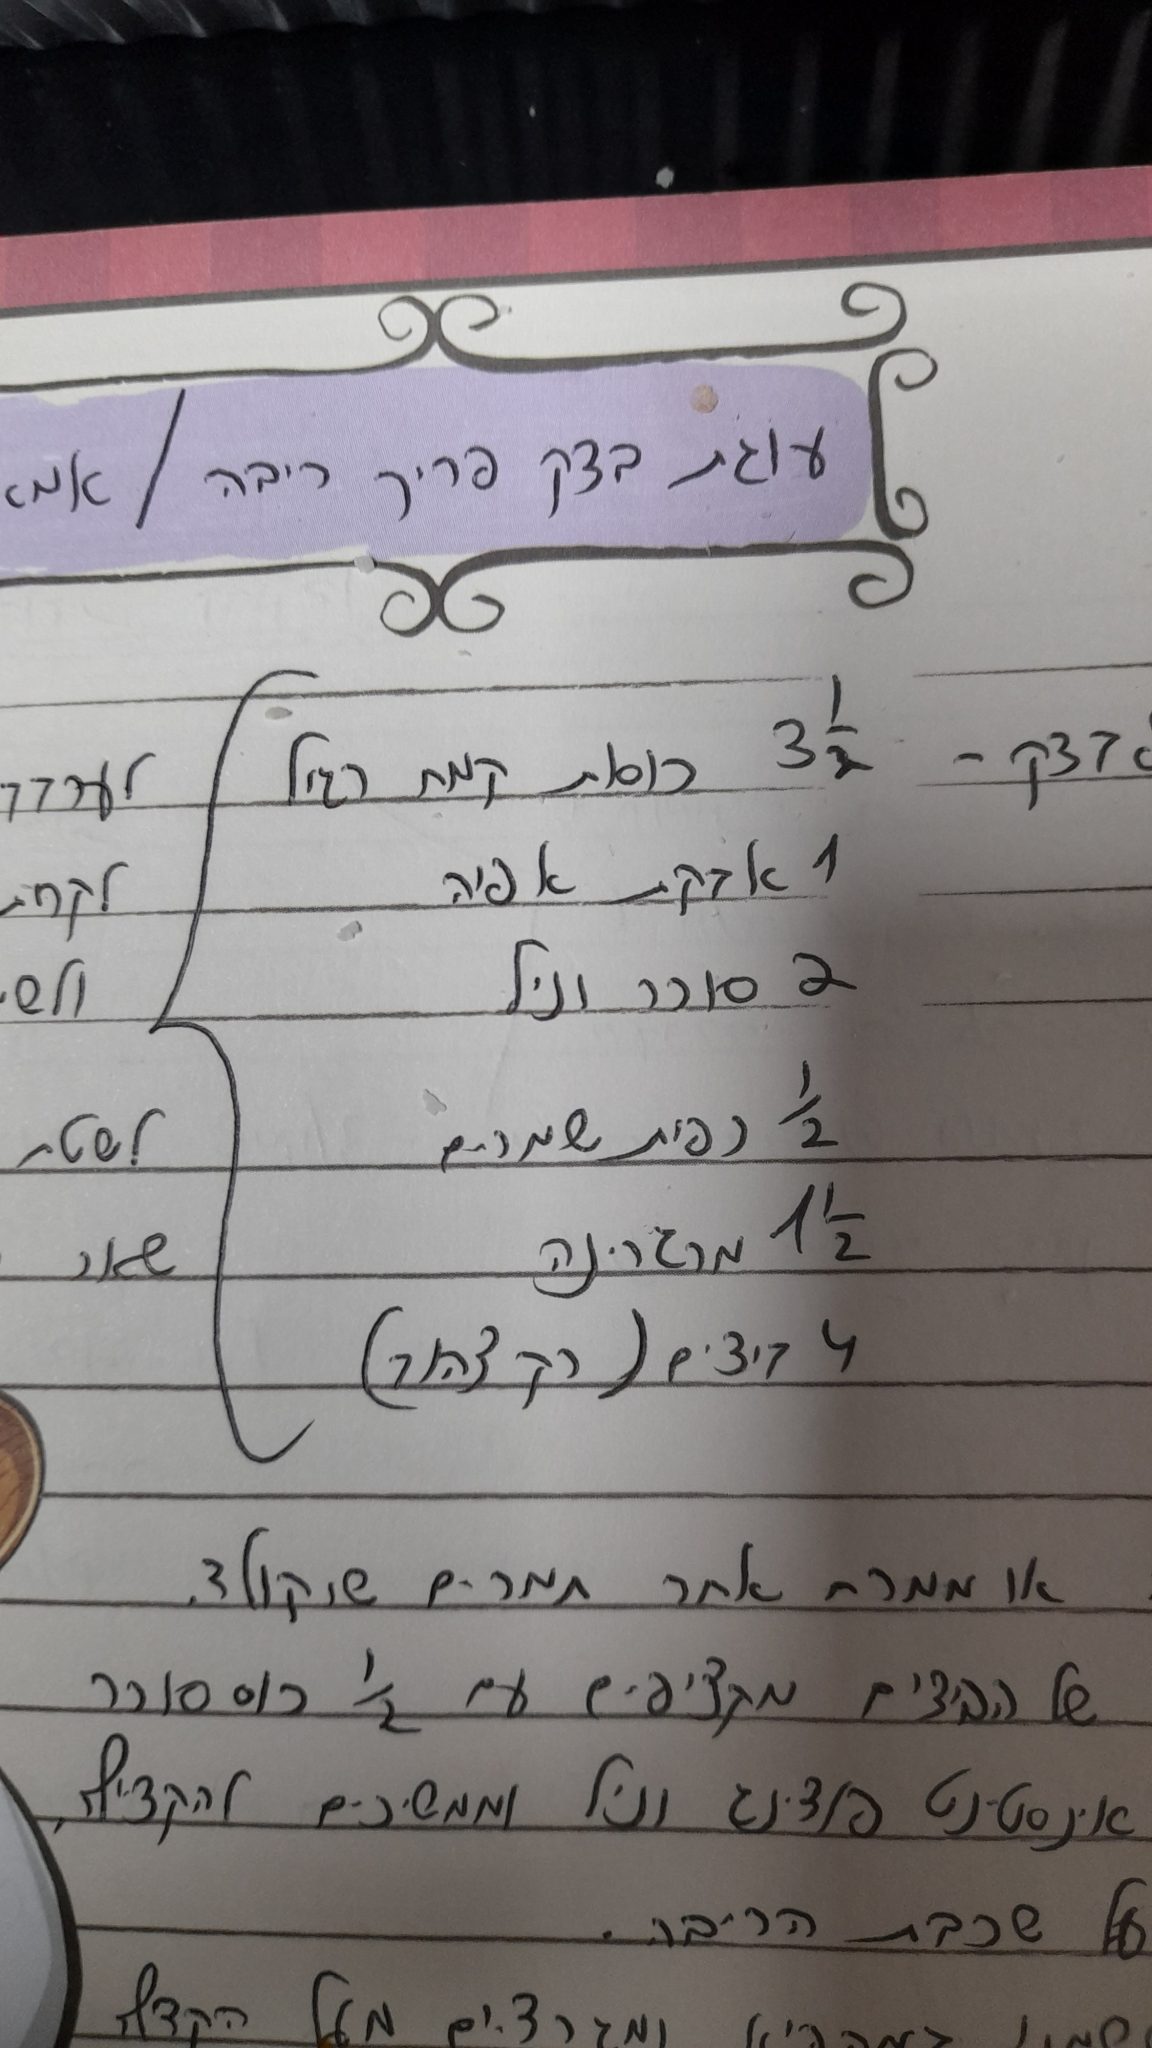 עוגת בצק פריך ריבה / אמא
בצק - 3 1/2 כוסות קמח רגיל
1 אבקת אפיה
2 סוכר וניל
1/2 כפית שמרים
1 1/2 מרגרינה
4 ביצים (רק צהוב)
לערבב
לקחת
לשטח
שאר
או ממרח אחר תמרים שוקולד.
של הביצים מקציפים עם 1/2 כוס סוכר
אינסטינט פודינג וניל וממשיכים להקציף.
על שכבת הריבה.
ומגרדים מעל הקצף